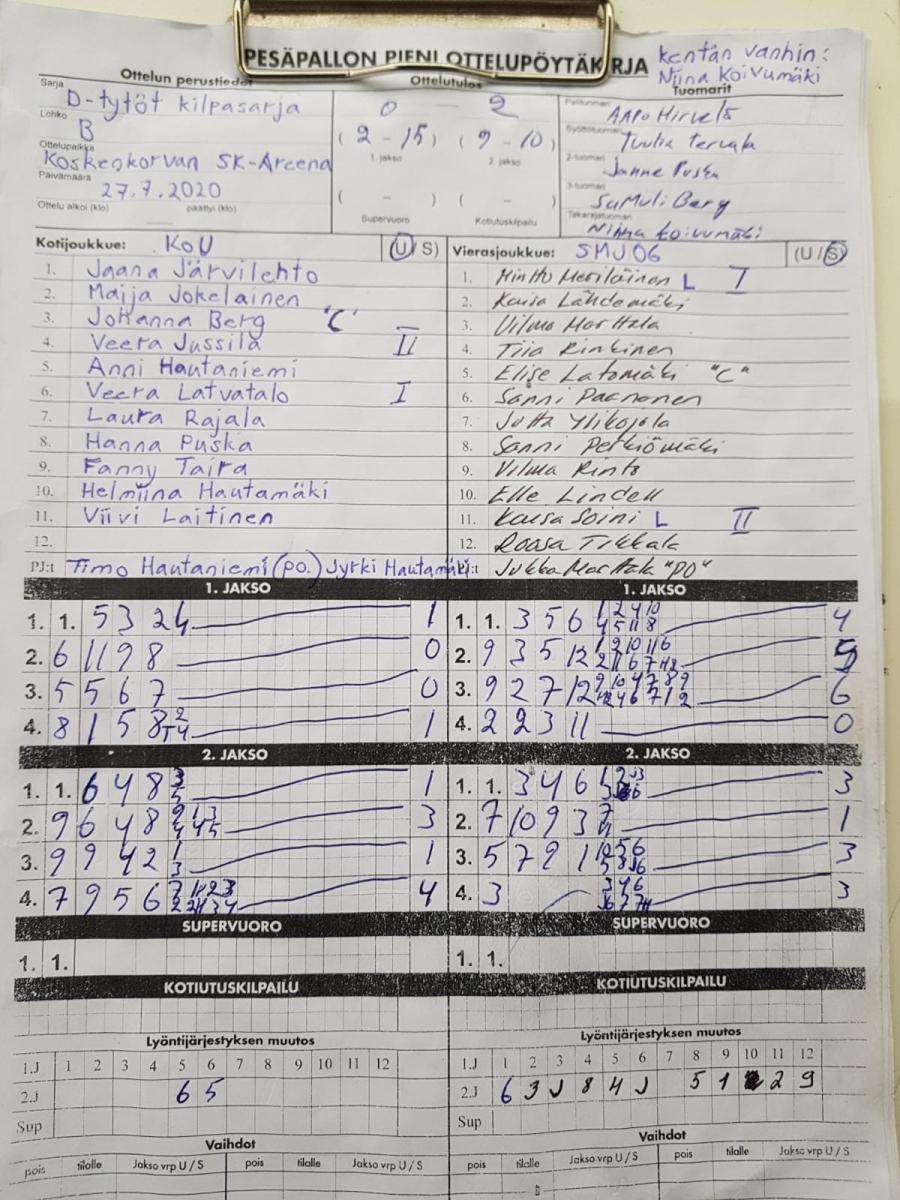 PESÄPALLON PIENI OTTELUPÖYTÄKIRJA
kentän vanhin:
Niina Koivumäki
Ottelun perustiedot
Ottelutulos
Tuomarit
Sarja
D-tytöt kilpasarja
Lohko
B
Ottelupaikka
Koskenkorvan SK-Areena
Päivämäärä
27.7.2020
Ottelu alkoi (klo) päättyi (klo)
0 - 2
(2 - 15) (9 - 10)
1. jakso 2. jakso
( - ) ( - )
Supervuoro Kotiutuskilpailu
Pelituomari
Aapo Hirvelä
Syöttötuomari
Tuulia Tervala
2-tuomari
Janne Puska
3-tuomari
Samuli Berg
Takarajatuomari
Niina Koivumäki
Kotijoukkue: KoU (U/S)
1. Jaana Järvilehto
2. Maija Jokelainen
3. Johanna Berg "C"
4. Veera Jussila II
5. Anni Hautaniemi
6. Veera Latvatalo I
7. Laura Rajala
8. Hanna Puska
9. Fanny Taira
10. Helmiina Hautamäki
11. Viivi Laitinen
12.
PJ:t Timo Hautaniemi (po.) Jyrki Hautamäki
Vierasjoukkue: SMJ06 (U/S)
1. Minttu Meriläinen L I
2. Kaisa Lähdemäki
3. Vilma Marttala
4. Tiia Rinkinen
5. Elise Latomäki "C"
6. Sanni Paananen
7. Jutta Ylikojola
8. Sanni Petkiömäki
9. Vilma Rinto
10. Elle Lindell
11. Kaisa Soini L II
12. Roosa Tikkala
PJ:t Jukka Marttala "PO"
1. JAKSO
1. 1. 5 3 2 4 1
2. 6 11 9 8 0
3. 5 5 6 7 0
4. 8 1 5 8 1
1. JAKSO
1. 1. 3 5 6 4
2. 9 3 5 12 5
3. 9 2 7 12 6
4. 2 2 3 11 0
2. JAKSO
1. 1. 6 4 8 1
2. 9 6 4 8 3
3. 9 9 4 2 1
4. 7 9 5 6 4
2. JAKSO
1. 1. 3 4 6 3
2. 7 10 9 3 1
3. 5 7 9 1 3
4. 3 3
SUPERVUORO
1. 1.
SUPERVUORO
1. 1.
KOTIUTUSKILPAILU
KOTIUTUSKILPAILU
Lyöntijärjestyksen muutos
1.J 1 2 3 4 5 6 7 8 9 10 11 12
2.J 6 5
Sup
Lyöntijärjestyksen muutos
1.J 1 2 3 4 5 6 7 8 9 10 11 12
2.J 6 3 J 8 4 J 5 1 2 9
Sup
Vaihdot
pois tilalle Jakso vrp U / S pois tilalle Jakso vrp U / S
Vaihdot
pois tilalle Jakso vrp U / S pois tilalle Jakso vrp U / S